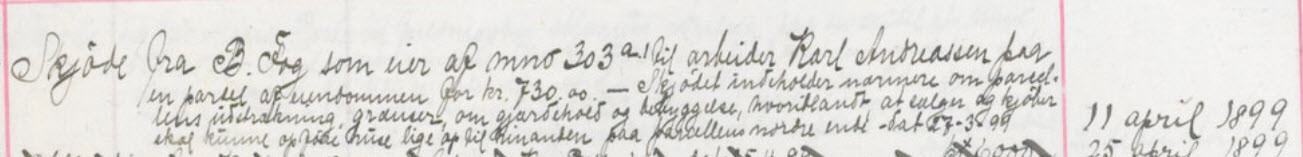 Skjøde fra B. Fog som eier af mno 303 a.1 til arbeider Karl Andreassen paa
en parcel af eiendommen for kr. 730,00. — Skjødet indeholder nærmere om parcel-
lens udstrækning, grænser, om gjærdehold og bebyggelse, hvoriblandt at sælger og kjøber
skal kunne opføre huse lige op til hinanden paa parcellens nordre ende - dat 27-3-99
11 april 1899
25 april 1899